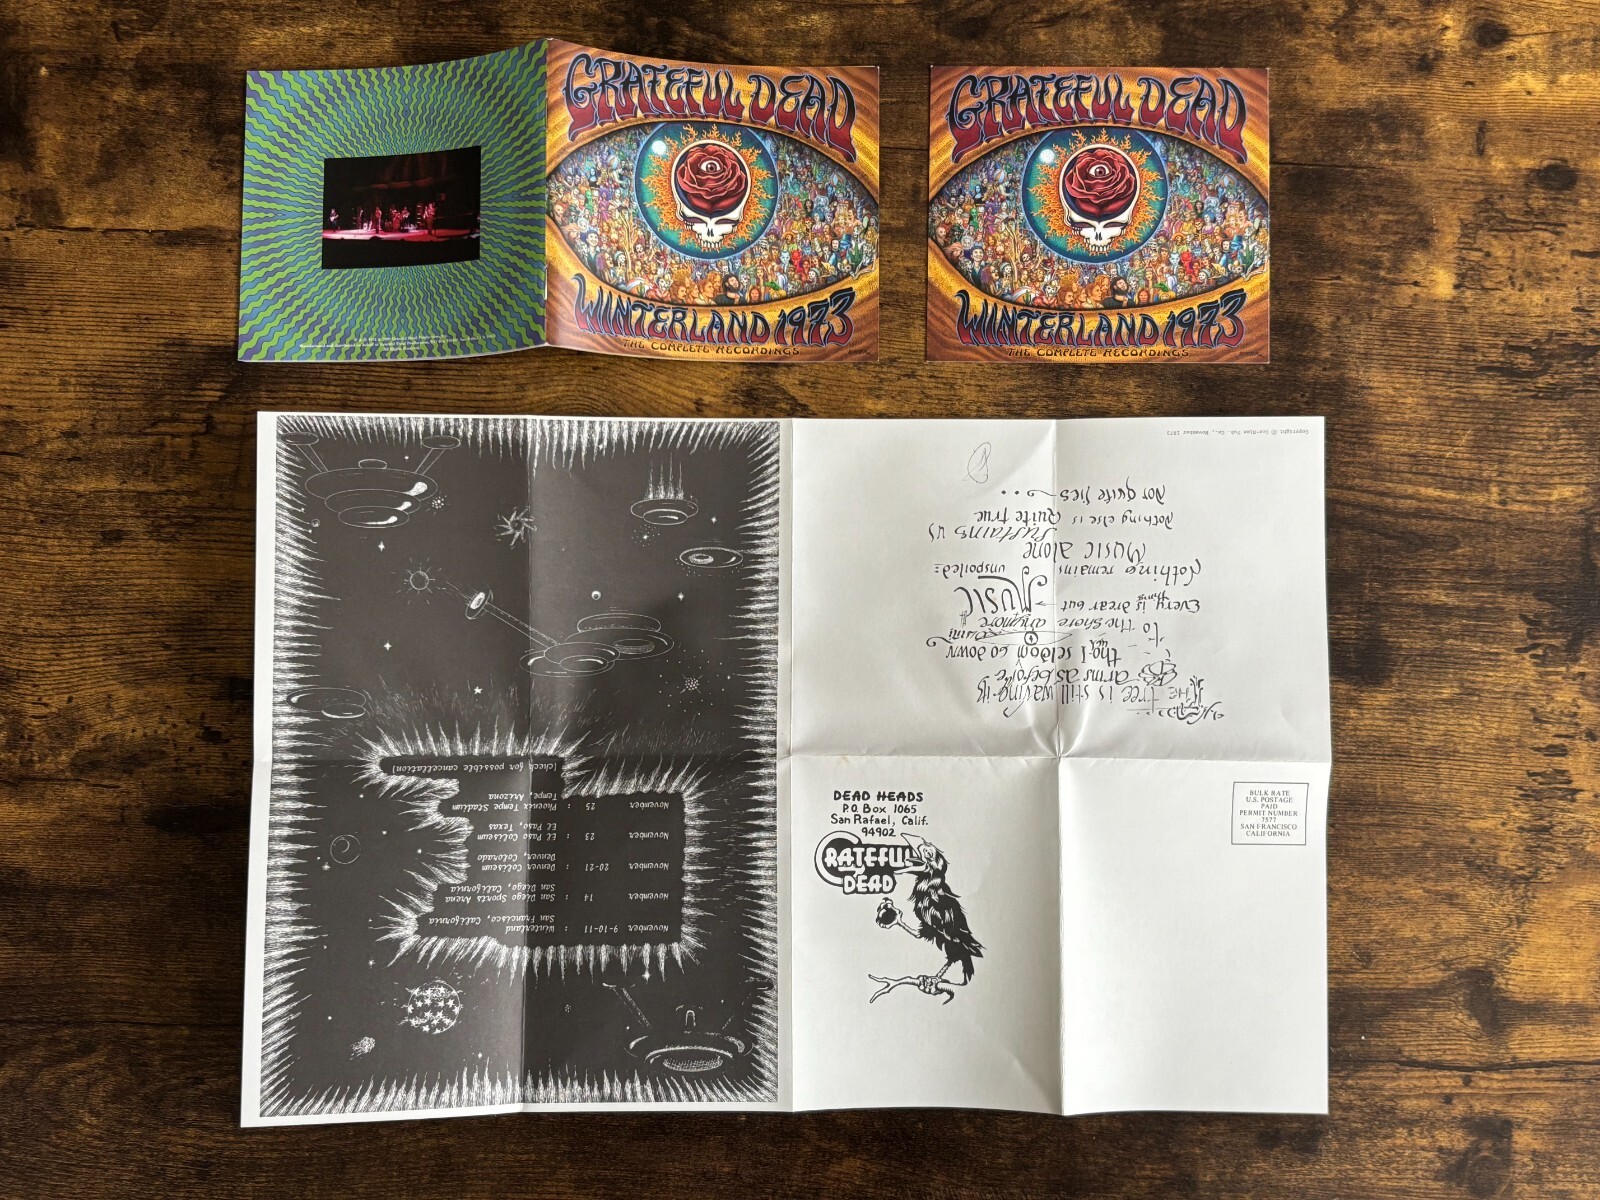 GRATEFUL DEAD
WINTERLAND 1973
THE COMPLETE RECORDINGS
GRATEFUL DEAD
WINTERLAND 1973
THE COMPLETE RECORDINGS
November 9-10-11 : Winterland
San Francisco, California
November 14 : San Diego Sports Arena
San Diego, California
November 20-21 : Denver Coliseum
Denver, Colorado
November 23 : El Paso Coliseum
El Paso, Texas
November 25 : Phoenix Tempe Stadium
Tempe, Arizona
(check for possible cancellation)
THE tree is still waving its
arms as before
tho I seldom go down
to the shore anymore
Everything is drear but MUSIC
Nothing remains unspoiled:
Music alone
sustains us
Nothing else is quite true
Not quite lies ...
Copyright © Ice-Nine Pub. Co., November 1973
DEAD HEADS
P.O. Box 1065
San Rafael, Calif.
94902
GRATEFUL
DEAD
BULK RATE
U.S. POSTAGE
PAID
PERMIT NUMBER
7577
SAN FRANCISCO
CALIFORNIA